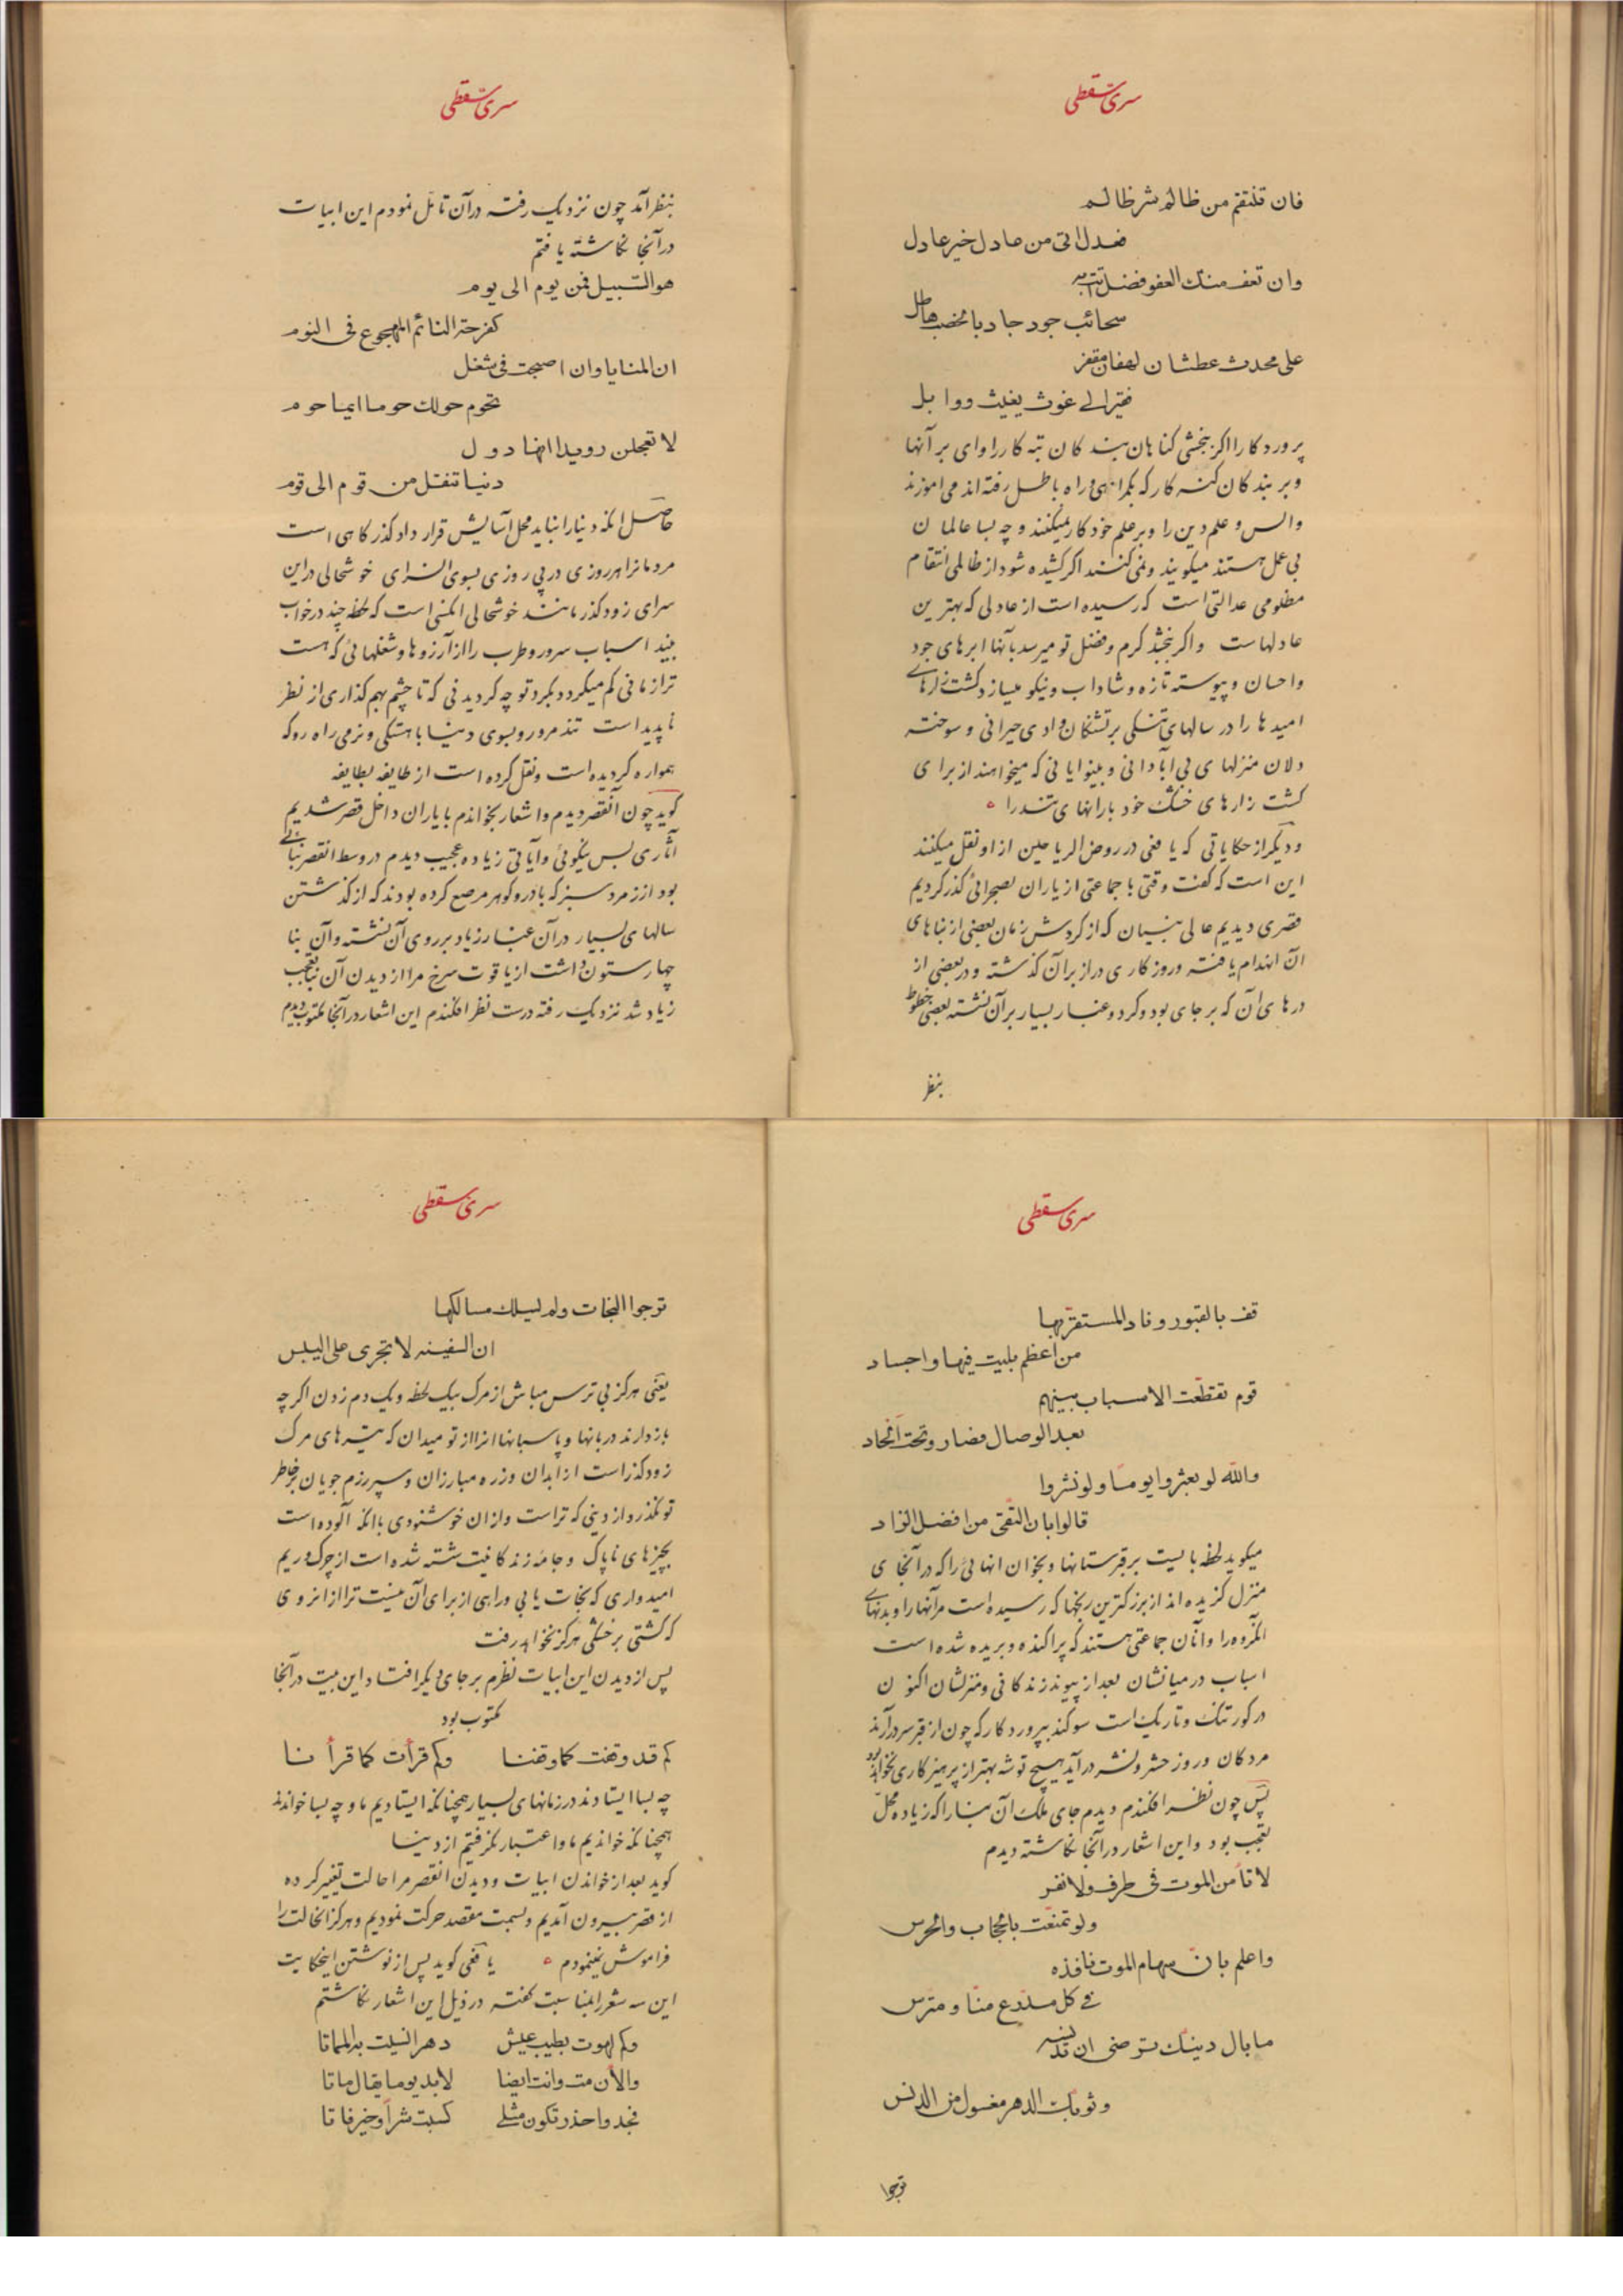 سری سقطی
فان تنتقم من ظالم شر ظالم
فعدل اتی من عادل خیر عادل
وان تعف منک العفو فضل
سحائب جود جاد بالخصب هاطل
علی محدث عطشان لهفان مقفر
فقیر الی غوث یغیث ووابل
پروردکارا اکر ببخشی کناهان بندکان تبه کار را وای بر آنها
وبر بندکان کنه کار که بکمراهی وراه باطل رفته اند می آموزند
والس وعلم دین را وبر علم خود کار نمیکنند وچه بسا عالمان
بی عمل هستند میکویند ونمی کنند اکر کشیده شود از ظالمی انتقام
مظلومی عدالتی است که رسیده است از عادلی که بهترین
عادلهاست واکر ببخشد کرم وفضل تو میرسد بآنها ابرهای جود
واحسان وپیوسته تازه وشاداب ونیکو میسازد کشت زارهای
امیدها را در سالهای تنکی بر تشنکان وادی حیرانی وسوخته
دلان منزلهای بی آبادانی وبینوایانی که میخواهند از برای
کشت زارهای خشک خود بارانهای تند را
ودیکر از حکایاتی که یافعی در روض الریاحین از او نقل میکنند
این است که کفت وقتی با جماعتی از یاران بصحرائی کذر کردیم
قصری دیدیم عالی بنیان که از کردش زمان بعضی از بناهای
آن انهدام یافته وروزکاری دراز بر آن کذشته ودر بعضی از
درهای آن که بر جای بود وکرد وغبار بسیار بر آن نشسته بعضی خطوط
بنظر
سری سقطی
بنظر آمد چون نزدیک رفته در آن تامل نمودم این ابیات
در آنجا نکاشته یافتم
هو السبیل فمن یوم الی یوم
کفرحة النائم المهجوع فی النوم
ان المنایا وان اصبحت فی شغل
تحوم حولک حوما ایما حوم
لا تعجلن رویدا انها دول
دنیا تنقل من قوم الی قوم
حاصل انکه دنیا را نباید محل آسایش قرار داد کذرکاهی است
مردمانرا هر روزی در پی روزی بسوی انسرای خوشحالی در این
سرای زودکذر مانند خوشحالی انکسی است که لحظه چند در خواب
بیند اسباب سرور وطرب را از آرزوها وشغلهائی که هست
ترا زمانی کم میکردد بکرد تو چه کردیدنی که تا چشم بهم کذاری از نظر
ناپدید است تند مرو وبسوی دنیا باهستکی ونرمی راه رو که
همواره کردیده است ونقل کرده است از طایفه بطایفه
کوید چون آنقصر دیدم واشعار بخواندم با یاران داخل قصر شدیم
آثاری بس نیکوئی وآیاتی زیاده عجیب دیدم در وسط انقصر بنائی
بود از زمرد سبز که بادر وکوهر مرصع کرده بودند که از کذشتن
سالهای بسیار در آن غبار زیاد بر روی آن نشسته وآن بنا
چهار ستون داشت از یاقوت سرخ مرا از دیدن آن بنا تعجب
زیاد شد نزدیک رفته درست نظر افکندم این اشعار در آنجا مکتوب دیدم
سری سقطی
قف بالقبور وناد المستقر بها
من اعظم بلیت فیها واجساد
قوم تقطعت الاسباب بینهم
بعد الوصال فصاروا تحت الحاد
والله لو بعثروا یوما ولو نشروا
قالوا بان التقی من افضل الزاد
میکوید لحظه بایست بر قبرستانها وبخوان انهائی را که در آنجای
منزل کزیده اند از بزرکترین رنجها که رسیده است مر آنها را وبدنهای
انکروه را وآنان جماعتی هستند که پراکنده وبریده شده است
اسباب در میانشان بعد از پیوند زندکانی ومنزلشان اکنون
در کور تنک وتاریک است سوکند بپروردکار که چون از قبر سر در آرند
مردکان وروز حشر ونشر در آید هیچ توشه بهتر از پرهیزکاری نخواهد بود
پس چون نظر افکندم دیدم جای ملک آن بنا را که زیاده محل
تعجب بود واین اشعار در آنجا نکاشته دیدم
لا تامن الموت فی طرف ولا نفس
ولو تمنعت بالحجاب والحرس
واعلم بان سهام الموت نافذه
فی کل مدرع منا ومترس
ما بال دینک ترضی ان تدنسه
وثوبک الدهر مغسول من الدنس
ترجوا
سری سقطی
ترجوا النجات ولم تسلک مسالکها
ان السفینه لا تجری علی الیبس
یعنی هرکز بی ترس مباش از مرک بیک لحظه ویک دم زدن اکر چه
باز دارند دربانها وپاسبانها انرا از تو میدان که تیرهای مرک
زودکذر است از ابدان وزره مبارزان وسپر رزم جویان بر خاطر
تو نکذرد از دینی که تراست وازان خوشنودی با انکه آلوده است
بچیزهای ناپاک وجامه زندکانیت شسته شده است از چرک وریم
امیدواری که نجات یابی وراهی از برای آن نیست ترا از انروی
که کشتی بر خشکی هرکز نخواهد رفت
پس از دیدن این ابیات نظرم بر جای دیکر افتاد این بیت در آنجا
مکتوب بود
کم قد وقفت کما وقفنا وکم قرأت کما قرأنا
چه بسا ایستادند در زمانهای بسیار همچنانکه ایستادیم ما وچه بسا خواندند
همچنانکه خواندیم ما واعتبار نکرفتیم از دنیا
کوید بعد از خواندن ابیات ودیدن انقصر مرا حالت تغییر کرده
از قصر بیرون آمدیم وبسمت مقصد حرکت نمودیم وهرکز انحالت را
فراموش نمینمودم یافعی کوید پس از نوشتن اینحکایت
این سه شعر را بمناسبت کفته در ذیل این اشعار نکاشتم
وکم لهوت بطیب عیش دهرا نسیت به المماتا
والأن مت وانت ایضا لابد یوما یقال ماتا
فجد واحذر تکون مثلی کسبت شرا وخیر فاتا